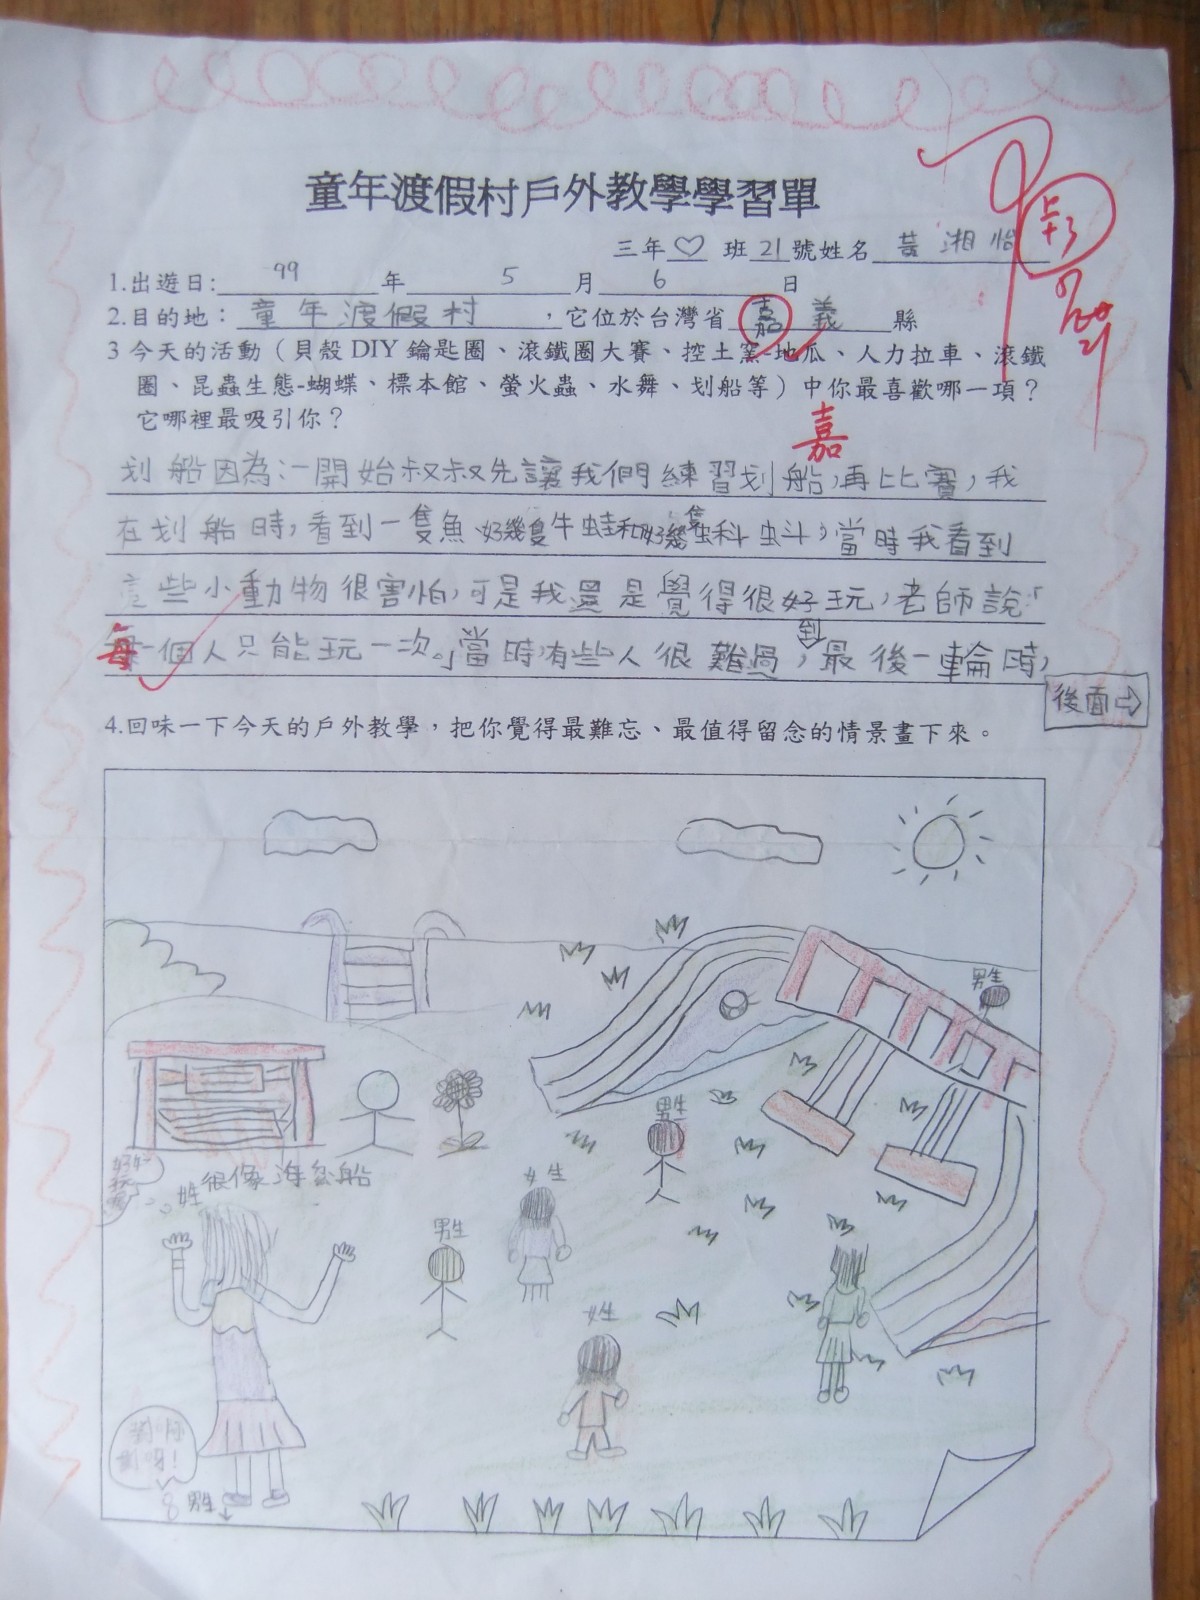 童年渡假村戶外教學學習單
三年♡班21號姓名黃湘怡
1.出遊日:99年5月6日
2.目的地：童年渡假村，它位於台灣省嘉義縣
3 今天的活動（貝殼DIY鑰匙圈、滾鐵圈大賽、控土窯-地瓜、人力拉車、滾鐵
圈、昆蟲生態-蝴蝶、標本館、螢火蟲、水舞、划船等）中你最喜歡哪一項？
它哪裡最吸引你？
嘉
划船因為:一開始叔叔先讓我們練習划船,再比賽,我
在划船時,看到一隻魚、好幾隻牛蛙和好幾隻蝌蚪,當時我看到
這些小動物很害怕,可是我還是覺得很好玩,老師說:「
每一個人只能玩一次。」當時,有些人很難過,到最後一輪時,
後面⇨
4.回味一下今天的戶外教學，把你覺得最難忘、最值得留念的情景畫下來。
男生
男生
很像海盜船
女生
男生
女生
男生